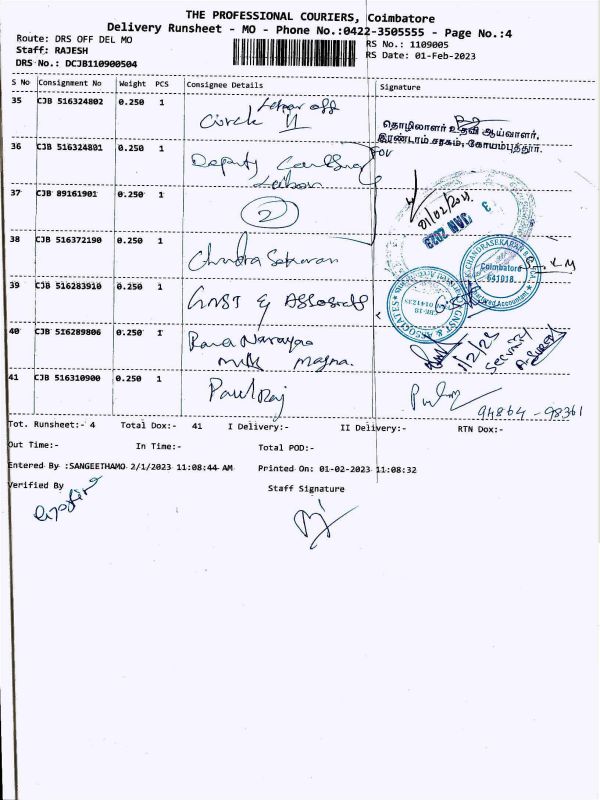 THE PROFESSIONAL COURIERS, Coimbatore
Delivery Runsheet - MO - Phone No.:0422-3505555 - Page No.:4
Route: DRS OFF DEL MO
RS No.: 1109005
Staff: RAJESH
RS Date: 01-Feb-2023
DRS No.: DCJB110900504
S No Consignment No Weight PCS Consignee Details Signature
35 CJB 516324802 0.250 1 Labour off
Circle II
தொழிலாளர் உதவி ஆய்வாளர்,
இரண்டாம் சரகம், கோயம்புத்தூர்.
36 CJB 516324801 0.250 1 Deputy
Labour
For
37 CJB 89161901 0.250 1 2
01/02/2023
JAN 2023
38 CJB 516372190 0.250 1 Chandra Sekaran
CHANDRASEKARAN
Coimbatore
641018.
Accountant
39 CJB 516283910 0.250 1 GNST & Associate
GNST & ASSOCIATES
40 CJB 516289806 0.250 1 Rana Narayan
Milk Magna
1/2/23
Security
A. Suresh
41 CJB 516310900 0.250 1 Paulraj
94864-98361
Tot. Runsheet:- 4 Total Dox:- 41 I Delivery:- II Delivery:- RTN Dox:-
Out Time:- In Time:- Total POD:-
Entered By :SANGEETHAMO 2/1/2023 11:08:44 AM Printed On: 01-02-2023 11:08:32
Verified By Staff Signature